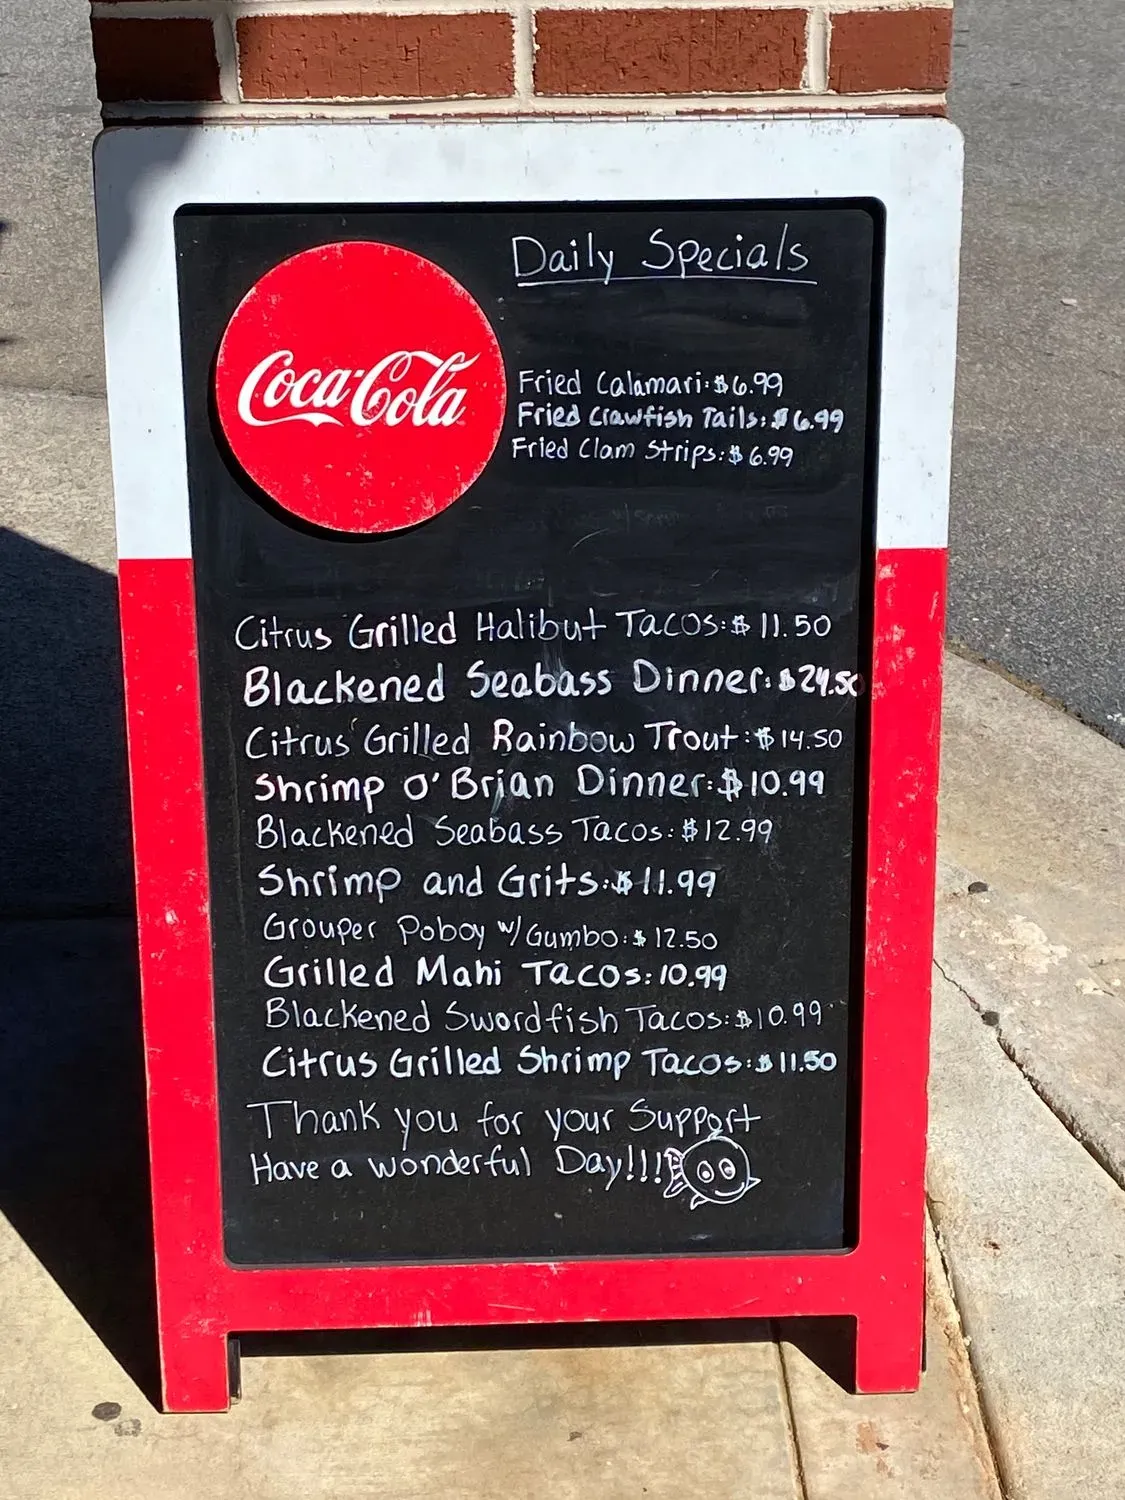 Daily Specials
Coca-Cola
Fried Calamari: $6.99
Fried Crawfish Tails: $6.99
Fried Clam Strips: $6.99
Citrus Grilled Halibut Tacos: $11.50
Blackened Seabass Dinner: $24.50
Citrus Grilled Rainbow Trout: $14.50
Shrimp O'Brian Dinner: $10.99
Blackened Seabass Tacos: $12.99
Shrimp and Grits: $11.99
Grouper Poboy w/ Gumbo: $12.50
Grilled Mahi Tacos: 10.99
Blackened Swordfish Tacos: $10.99
Citrus Grilled Shrimp Tacos: $11.50
Thank you for your Support
Have a wonderful Day!!!